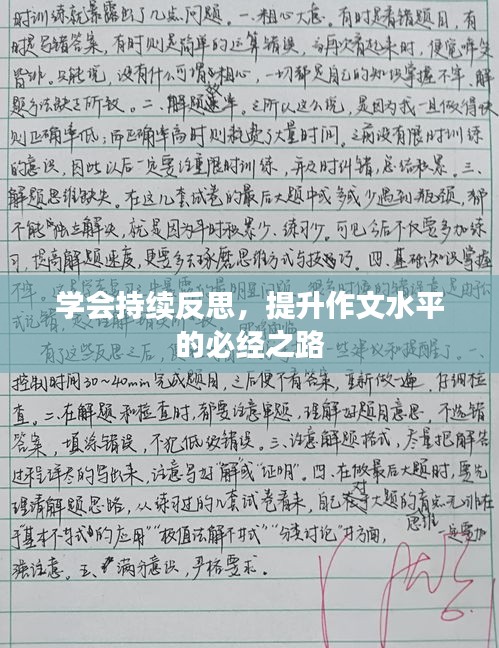 时训练就暴露出了几点问题。一、粗心大意。有时是看错题目,有
时是写错答案,有时则是简单的运算错误,当再次看起来时,便觉啼笑
皆非。只能说,没有什么可谓粗心,一切都是自己的知识掌握不牢、解
题方法缺乏所致。二、解题速率。之所以这么说,是因为我一旦做得快
则正确率低;而正确率高时则耗费了大量时间。之前没有限时训练
的意识,因此以后一定要注重限时训练,并及时纠错,总结积累。三、
解题思维缺失。在这几套试卷的最后大题中或多或少遇到瓶颈,都
不能独立解决,就是因为平时积累少、练习少。可见今后不仅要多加练
习,提高解题速度,更要多去琢磨思维方式与技巧。四、基础知识掌握
学会持续反思,提升作文水平
的必经之路
有了这些反思之后,
控制时间30~40min完成题目,之后便不看答案,重新做一遍,仔细检
查。二、在解题和检查时,都要注意审题,理解好题目意思,不选错
答案,填涂错误,不犯低级错误。三、注意解题格式,尽量把解答
过程详尽的写出来,注意写好"解"或"证明"。四、在做最后大题时,要先
理清解题思路,从练习过的几套试卷看来,自己对大题的
于"基本不等式的应用""极值法解不等式""分类讨论"等方面,思维一定要加
强注意。五、满分意识,严格要求。